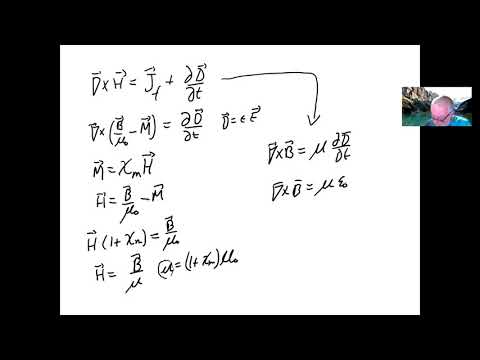 ∇⃗×H⃗ = J⃗_f + ∂D⃗/∂t
∇⃗×(B⃗/μ₀ − M⃗) = ∂D⃗/∂t D⃗=εE⃗
M⃗ = χ_m H⃗
H⃗ = B⃗/μ₀ − M⃗
H⃗(1+χ_m) = B⃗/μ₀
H⃗ = B⃗/μ μ=(1+χ_m)μ₀
∇⃗×B⃗ = μ ∂D⃗/∂t
∇⃗×B⃗ = με₀